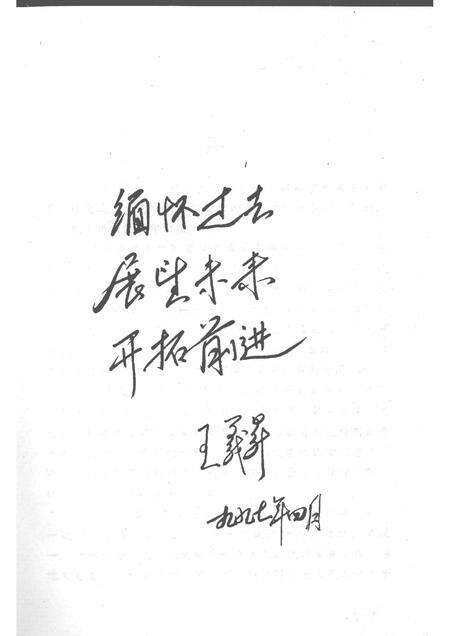 缅怀过去
展望未来
开拓前进
王义昇
九九七年四月